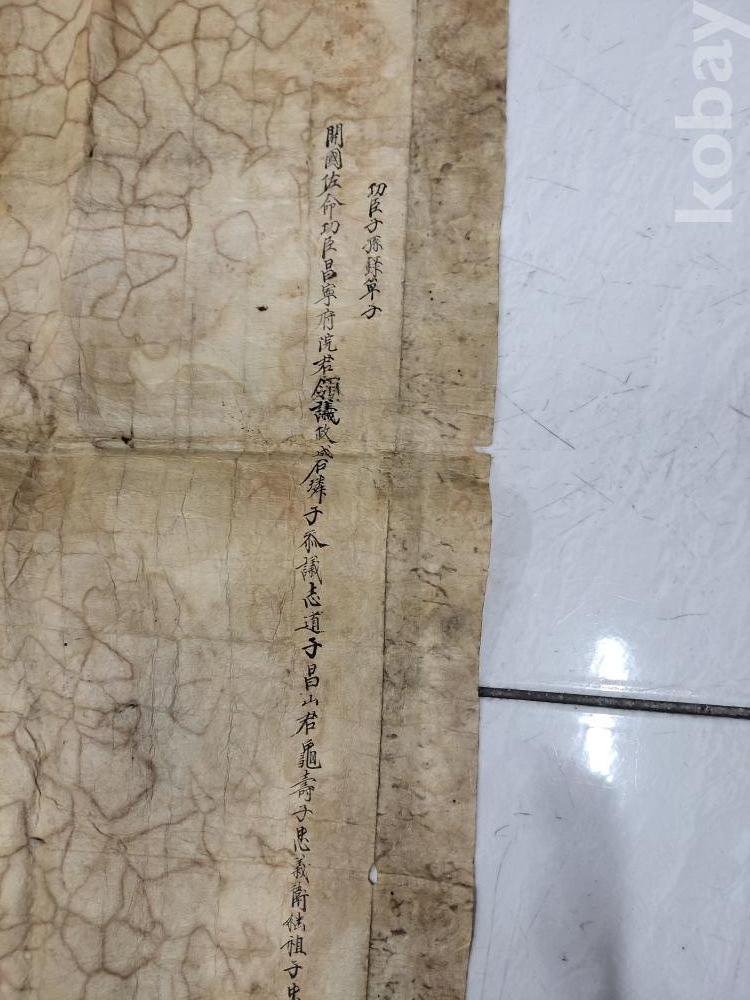 功臣子孫錄單子
開國佐命功臣昌寧府院君領議政成石璘子叅議志道子昌山君龜壽子忠義衛継祖子忠
kobay